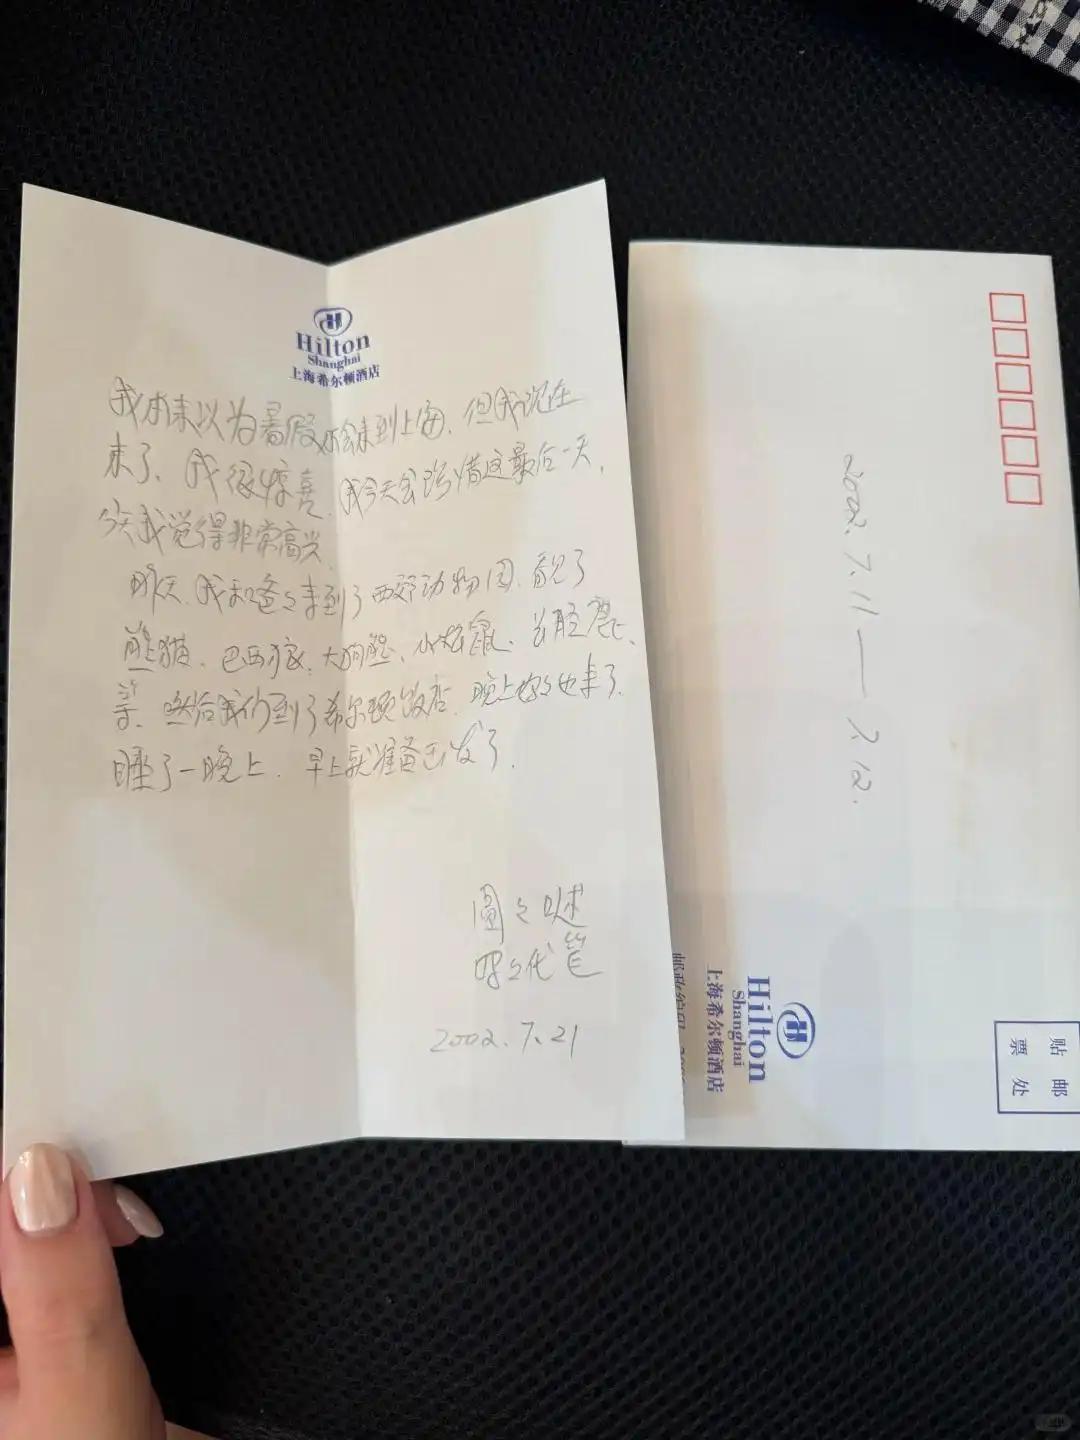 Hilton
Shanghai
上海希尔顿酒店
我本来以为暑假不会来到上海，但我现在
来了，我很惊喜，我今天会珍惜这最后一天，
今天我觉得非常高兴。
昨天，我和爸々来到了西郊动物园，看见了
熊猫、巴西狼、大狗熊、小松鼠、长颈鹿、
等，然后我们到了希尔顿饭店，晚上妈々也来了，
睡了一晚上，早上就准备出发了。
圆々
妈々代笔
2002.7.21
2002.7.11——7.12.
Hilton
Shanghai
上海希尔顿酒店
邮政编码
贴邮
票处